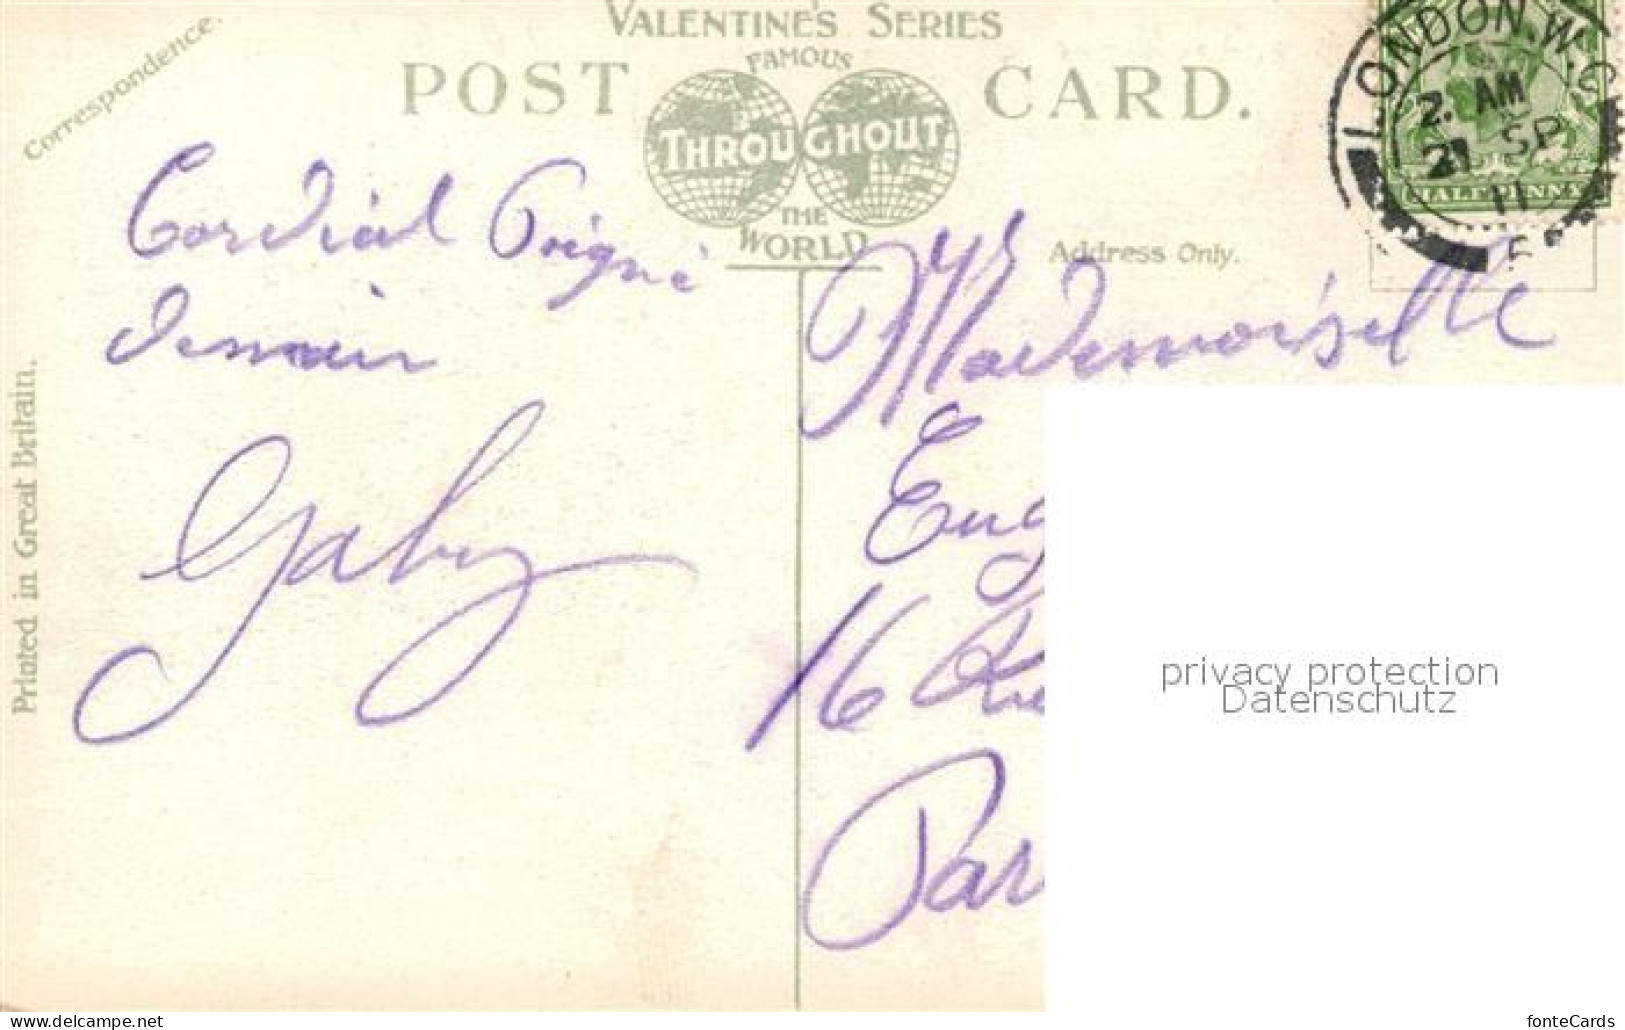 VALENTINE'S SERIES
FAMOUS
POST CARD.
THROUGHOUT
THE
WORLD
Correspondence.
Address Only.
Printed in Great Britain.
LONDON. W.C
2. AM
21 SP
11
HALFPENNY
Cordial
Gaby
Mademoiselle
Eug
16 Rue
Par
privacy protection
Datenschutz
www.delcampe.net
fonteCards